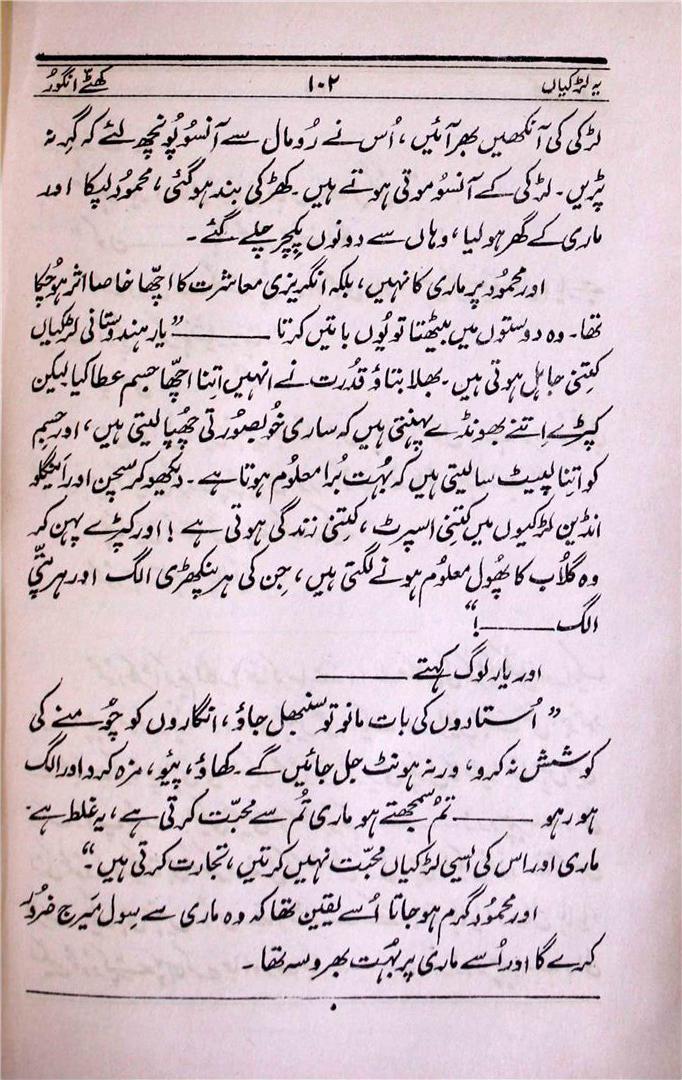 یہ لڑکیاں ۱۰۲ کھٹّے انگور
لڑکی کی آنکھیں بھر آئیں، اُس نے رُومال سے آنسوُ پونچھ لئے کہ گِر نہ
پڑیں۔ لڑکی کے آنسوُ موتی ہوتے ہیں۔ کھڑکی بند ہو گئی، محمود لپکا اور
ماری کے گھر ہو لیا، وہاں سے دونوں پکچر چلے گئے۔
اور محمُود پر ماری کا نہیں، بلکہ انگریزی معاشرت کا اچھّا خاصا اثر ہو چُکا
تھا۔ وہ دوستوں میں بیٹھتا تو یُوں باتیں کرتا ــــــــ ”یار ہندوستانی لڑکیاں
کِتنی جاہل ہوتی ہیں۔ بھلا بتاؤ قدُرت نے انہیں اتنا اچھّا جسم عطا کیا لیکن
کپڑے اِتنے بھونڈے پہنتی ہیں کہ ساری خُوبصُورتی چُھپا لیتی ہیں، اور جسم
کو اتِنا لپیٹ سا لیتی ہیں کہ بہُت بُرا معلُوم ہوتا ہے۔ دیکھو کرسچن اور اَینگلو
انڈین لڑکیوں میں کتِنی اسپرٹ، کِتنی زندگی ہوتی ہے! اور کپڑے پہن کر
وہ گلاُب کا پھُول معلُوم ہونے لگتی ہیں، جِن کی ہر پنکھڑی الگ اور ہر پتّی
الگ ــــــــ!“
اور یار لوگ کہتے ــــــــ
”اُستادوں کی بات مانو تو سنبھل جاؤ، انگاروں کو چوُمنے کی
کوشش نہ کرو، ورنہ ہونٹ جل جائیں گے۔ کھاؤ، پیئو، مزہ کرو اور الگ
ہو رہو ــــــــ تمُ سمجھتے ہو ماری تُم سے محبّت کرتی ہے، یہ غلط ہے۔
ماری اور اس کی ایسی لڑکیاں محبّت نہیں کرتیں، تجارت کرتی ہیں۔“
اور محموُد گرم ہو جاتا اُسے یقین تھا کہ وہ ماری سے سِول مَیرج ضرُور
کرے گا اور اُسے ماری پر بہُت بھروسہ تھا۔